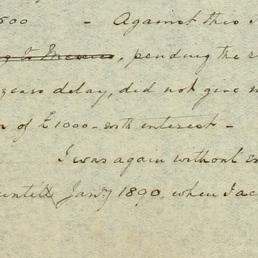 500 - Against this
, pending the
years delay, did not give
of £1000 - with interest -
I was again without
until Jany 1890, when I ac